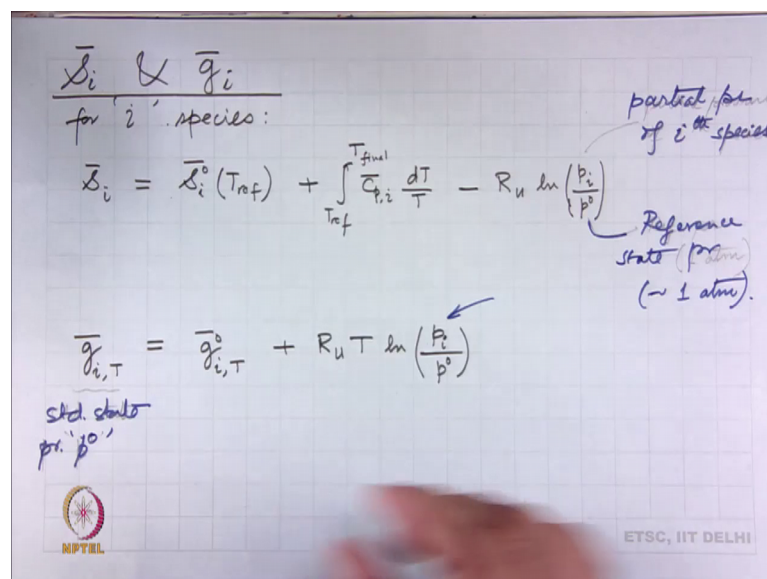 s̄ᵢ & ḡᵢ
for 'i' species:
s̄ᵢ = s̄ᵢ⁰ (T_ref) + ∫_{T_ref}^{T_final} C̄_{p,i} dT/T − R_u ln (pᵢ/p⁰)
partial pr
of iᵗʰ species
Reference
state pr
(~ 1 atm).
ḡ_{i,T} = ḡ⁰_{i,T} + R_u T ln (pᵢ/p⁰)
std. state
pr. "p⁰"
NPTEL
ETSC, IIT DELHI